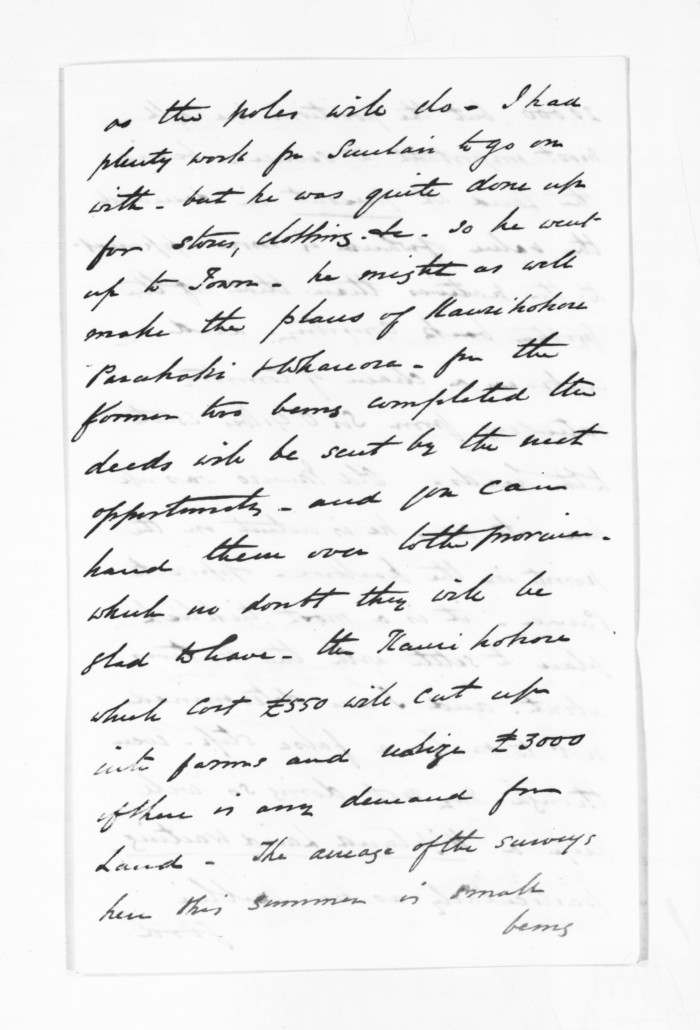 as the poles will do - I had
plenty work for Sinclair to go on
with - but he was quite done up
for stores, clothing &c - so he went
up to Town - he might as well
make the plans of Kaurikohore
Parahaki & Whareora - for the
former two being completed the
deeds will be sent by the next
opportunity - and you can
hand them over to the Province -
which no doubt they will be
glad to have - the Kaurikohore
which cost £550 will cut up
into farms and realize £3000
if there is any demand for
Land - The acreage of the surveys
here this summer is small
being